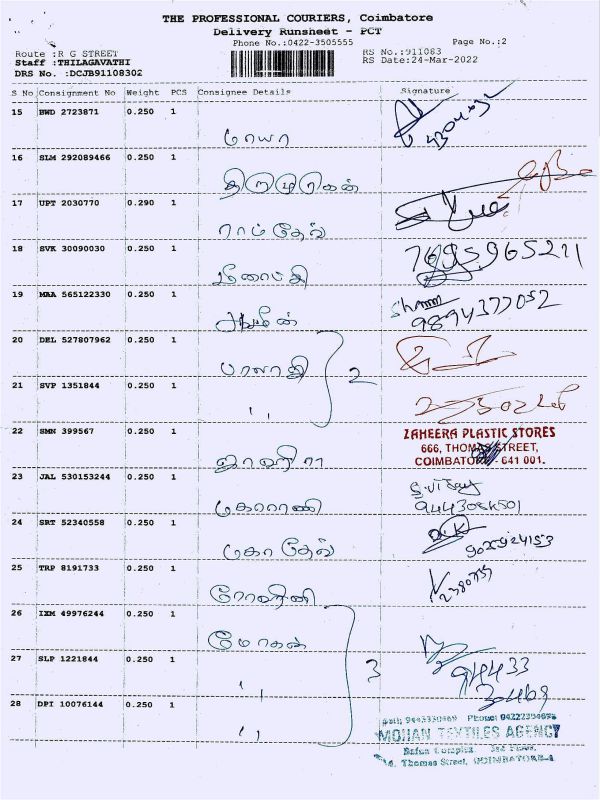 THE PROFESSIONAL COURIERS, Coimbatore
Delivery Runsheet - PCT
Phone No.:0422-3505555
Page No.:2
Route :R G STREET
Staff :THILAGAVATHI
DRS No. :DCJB91108302
RS No.:911083
RS Date:24-Mar-2022
S No Consignment No Weight PCS Consignee Details Signature
15 BWD 2723871 0.250 1
மாயா
16 SLM 292089466 0.250 1
திருமுருகன்
17 UPT 2030770 0.290 1
ராம்தேவ்
18 SVK 30090030 0.250 1
7695965211
மீனாட்சி
19 MAA 565122330 0.250 1
9894377052
20 DEL 527807962 0.250 1
பாலாஜி 2
21 SVP 1351844 0.250 1
,,
22 SMN 399567 0.250 1
ZAHEERA PLASTIC STORES
666, THOMAS STREET,
COIMBATORE - 641 001.
ஜாஹிரா
23 JAL 530153244 0.250 1
S.vijay
மகாராணி
24 SRT 52340558 0.250 1
மகாதேவ்
25 TRP 8191733 0.250 1
ரோஹிணி
26 IXM 49976244 0.250 1
மோகன்
27 SLP 1221844 0.250 1
3
94433
30469
,,
28 DPI 10076144 0.250 1
MOHAN TEXTILES AGENCY
,,
Thomas Street, COIMBATORE-1